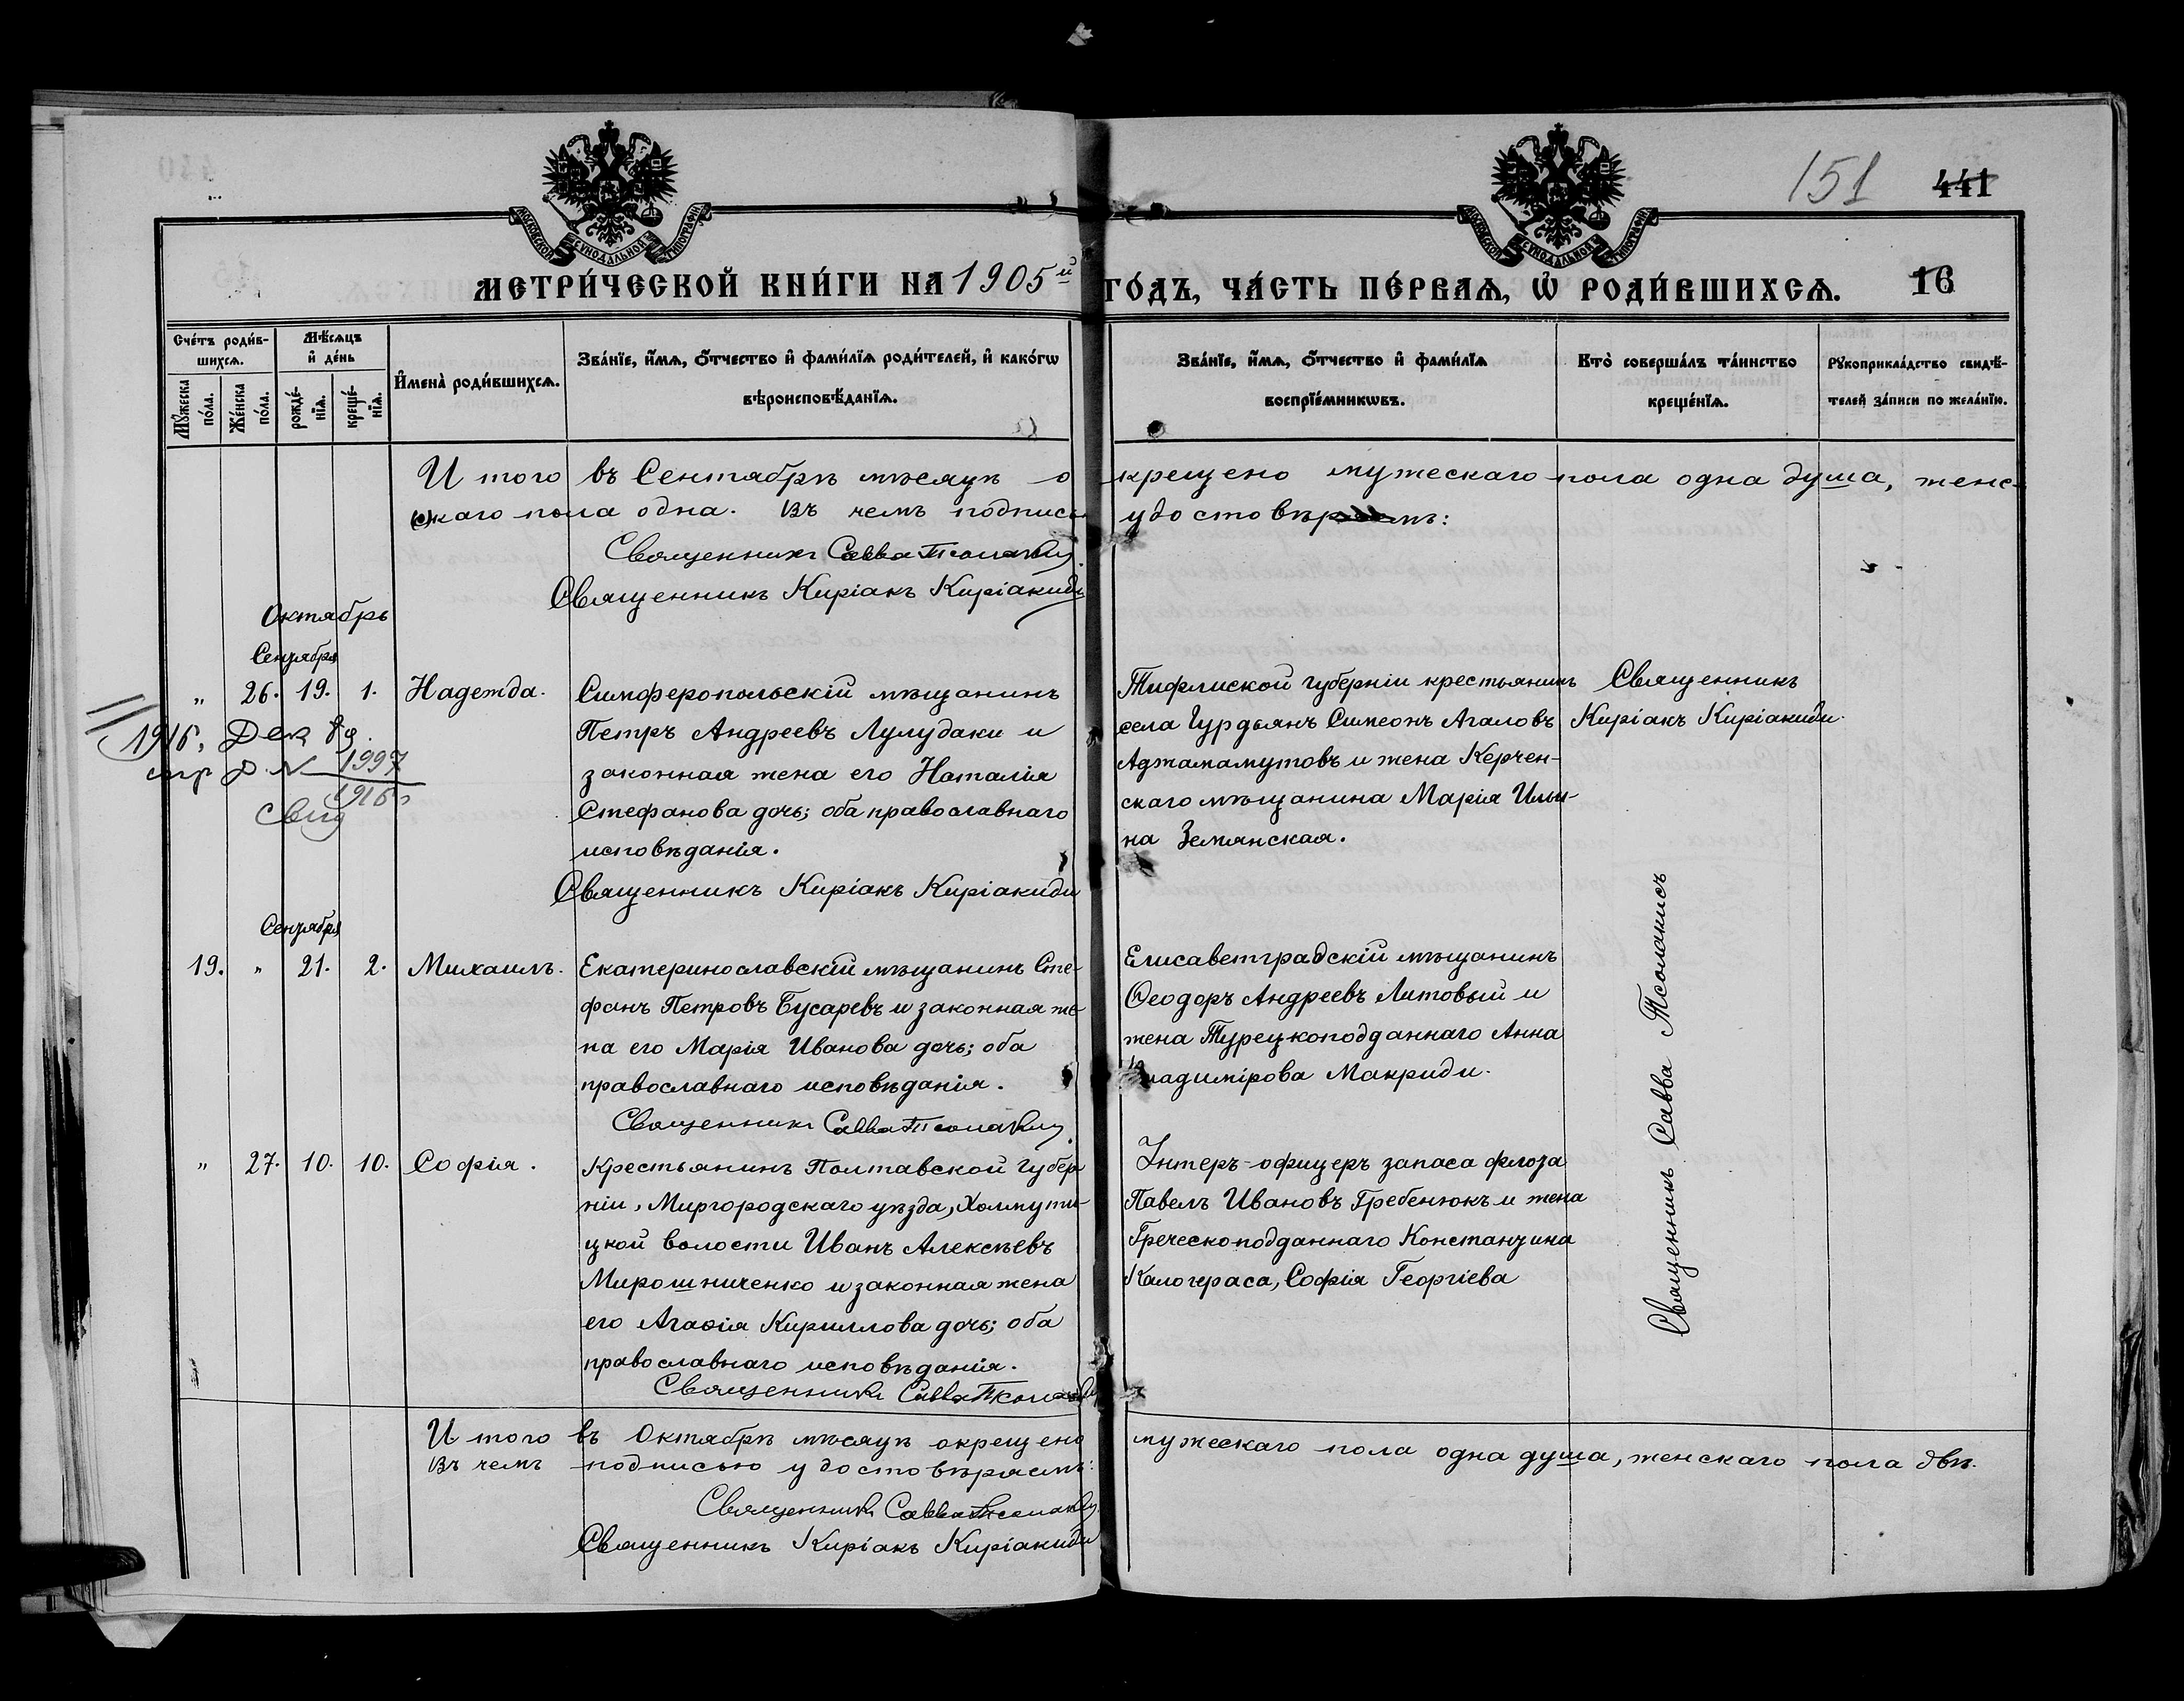 151 441
МОСКОВСКОЙ СѴНОДАЛЬНОЙ ТИПОГРАФІИ
МОСКОВСКОЙ СѴНОДАЛЬНОЙ ТИПОГРАФІИ
МЕТРИ́ЧЕСКОЙ КНИ́ГИ НА 1905й ГО́ДЪ, ЧА́СТЬ ПЕ́РВАѦ, Ѡ҆ РОДИ́ВШИХСѦ. 16
Сче́тъ роди́в-
шихсѧ.
Мꙋ́жеска по́ла.
Же́нска по́ла.
Мѣ́сѧцъ
и҆ де́нь
рожде́-
нїѧ.
креще́-
нїѧ.
И҆мена̀ роди́вшихсѧ.
Зва́нїе, и҆́мѧ, ѻ҆́тчество и҆ фами́лїѧ роди́телей, и҆ како́гѡ
вѣроисповѣ́данїѧ.
Зва́нїе, и҆́мѧ, ѻ҆́тчество и҆ фами́лїѧ
воспрїе́мникѡвъ.
Кто̀ соверша́лъ та́инство
креще́нїѧ.
Рꙋкоприкла́дство свидѣ́-
телей за́писи по жела́нїю.
И того въ Сентябрѣ мѣсяцѣ окрещено мужескаго пола одна душа, женс-
скаго пола одна. Въ чемъ подписью удостовѣряемъ:
Священникъ Савва
Священникъ Киріакъ Киріакиди
Октябрь
Сентября
" 26. 19. 1. Надежда.
Симферопольскій мѣщанинъ
Петръ Андреевъ Лулудаки и
законная жена его Наталія
Стефанова дочь; оба православнаго
исповѣданія.
Священникъ Киріакъ Киріакиди
Тифлиской губерніи крестьянинъ
села Гурдьянъ Симеонъ Агаловъ
Аджамамутовъ и жена Керчен-
скаго мѣщанина Марія Ильи-
на Земянская.
Священникъ
Киріакъ Киріакиди.
1916, Дек 8 д.
№ 1997
1916
Свид
Сентября
19. " 21. 2. Михаилъ.
Екатеринославскій мѣщанинъ Сте-
фанъ Петровъ Бусаревъ и законная же-
на его Марія Иванова дочь; оба
православнаго исповѣданія.
Священникъ Савва
Елисаветградскій мѣщанинъ
Ѳеодоръ Андреевъ Литовый и
жена Турецкоподданнаго Анна
Владимірова Макриди.
Священникъ Савва Тсолакисъ
" 27. 10. 10. Софія.
Крестьянинъ Полтавской губер
ніи, Миргородскаго уѣзда, Хомути-
цкой волости Иванъ Алексѣевъ
Мирошниченко и законная жена
его Агаѳія Кириллова дочь; оба
православнаго исповѣданія.
Священникъ Савва
Унтеръ-офицеръ запаса флота
Павелъ Ивановъ Гребенюкъ и жена
Греческоподданнаго Константина
Калогераса, Софія Георгіева
И того въ Октябрѣ мѣсяцѣ окрещено мужескаго пола одна душа, женскаго пола двѣ.
Въ чемъ подписью удостовѣряемъ:
Священникъ Савва
Священникъ Киріакъ Киріакиди